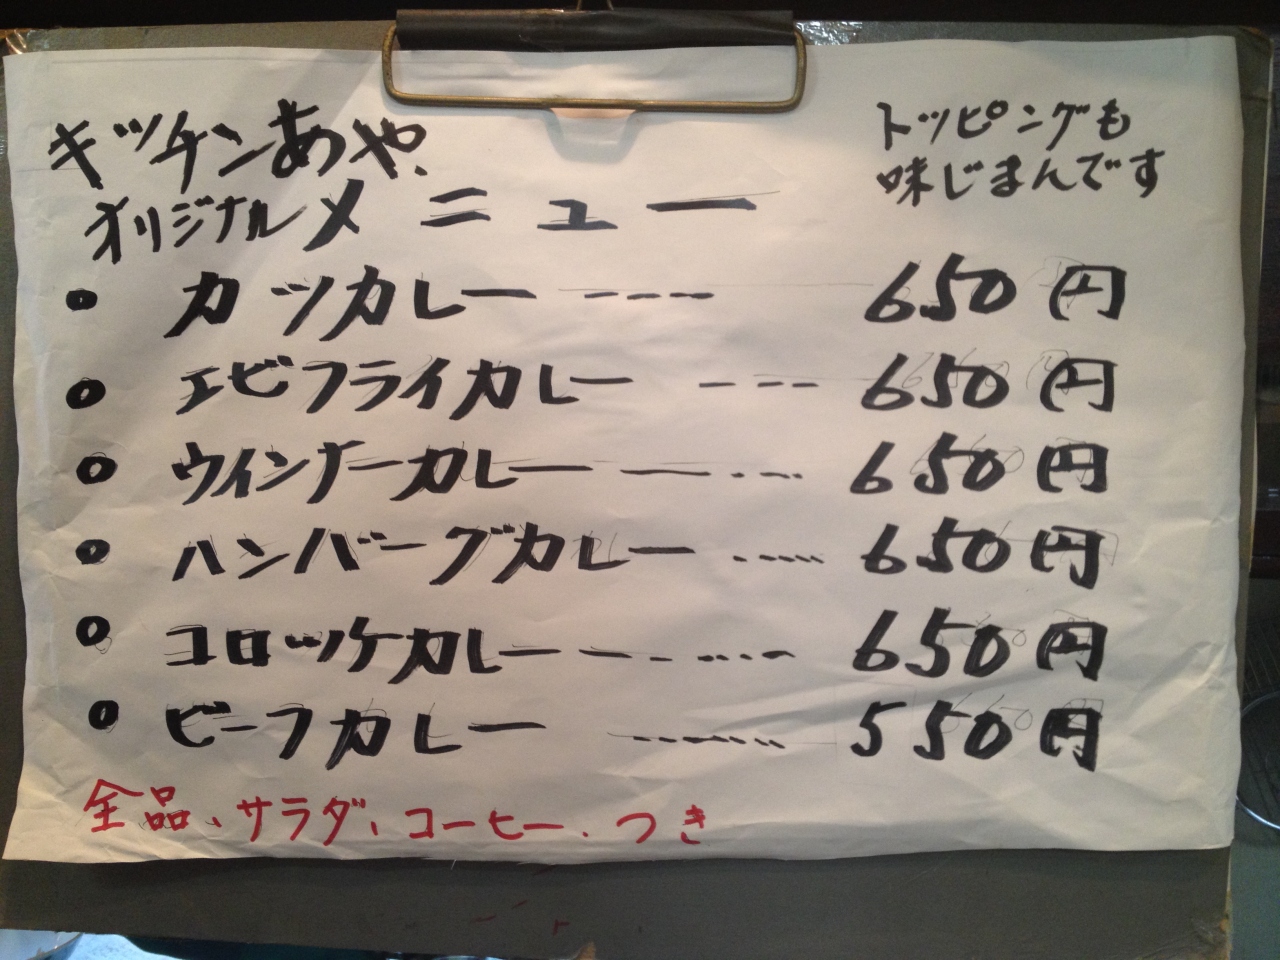 キッチンあや、
オリジナルメニュー
トッピングも
味じまんです
○ カツカレー ---- 650円
○ エビフライカレー ---- 650円
○ ウインナーカレー ---- 650円
○ ハンバーグカレー ..... 650円
○ コロッケカレー ------ 650円
○ ビーフカレー ....... 550円
全品、サラダ、コーヒー、つき